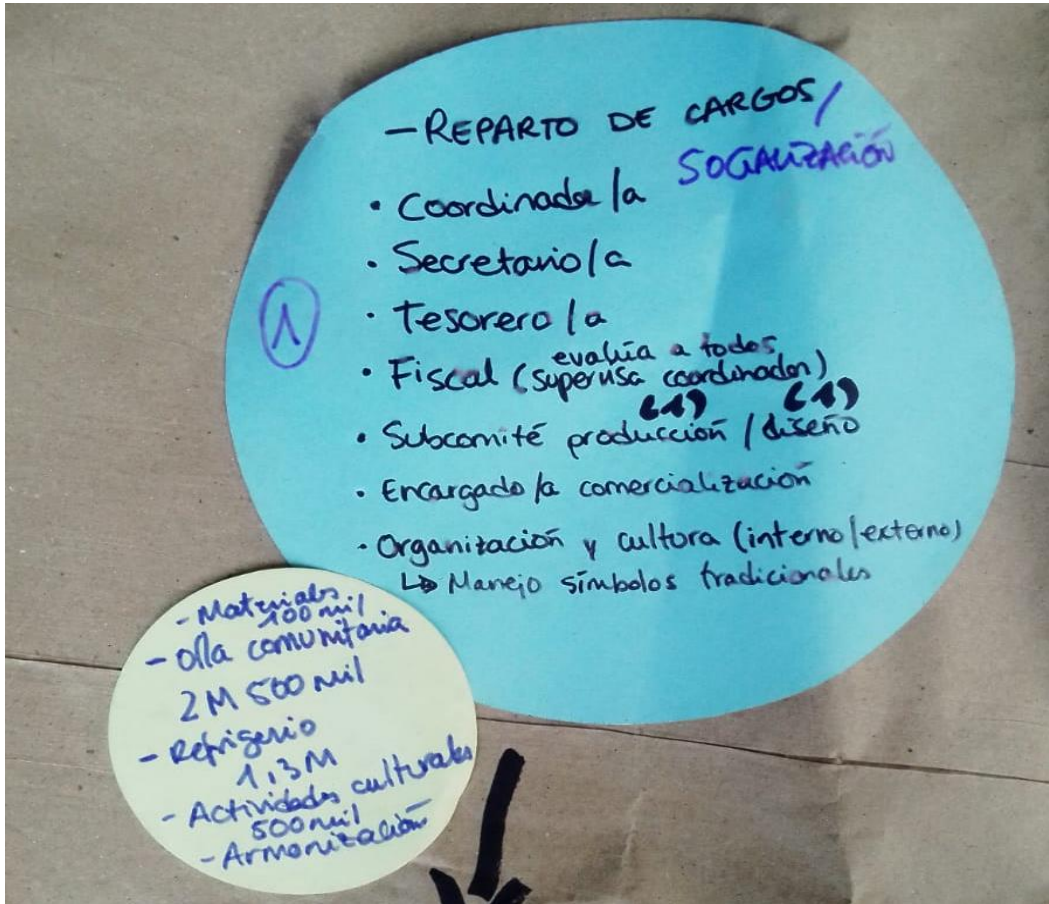 - REPARTO DE CARGOS/
SOCIALIZACIÓN
• Coordinador/a
• Secretario/a
• Tesorero/a
1
• Fiscal (supervisa coordinador)
evalúa a todos
(1) (1)
• Subcomité producción / diseño
• Encargado/a comercialización
• Organización y cultura (interno/externo)
↳ Manejo símbolos tradicionales
- Materiales
100 mil
- Olla comunitaria
2M 500 mil
- Refrigerio
1,3M
- Actividades culturales
500 mil
- Armonización